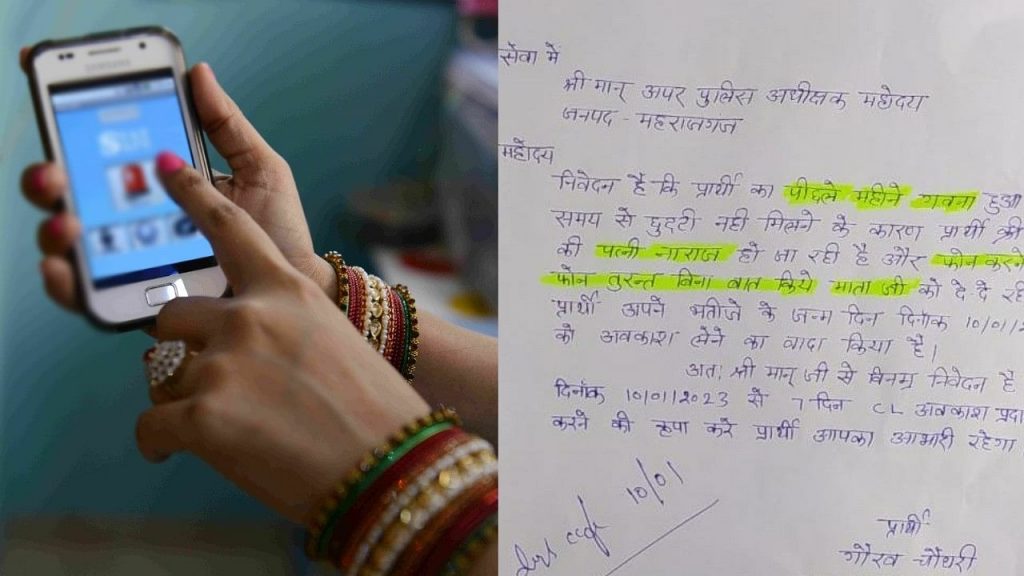 SAMSUNG
सेवा में
श्री मान् अपर पुलिस अधीक्षक महोदय
जनपद - महराजगंज
महोदय
निवेदन है कि प्रार्थी का पीछले महीने गवना हुआ
समय से छुट्टी नही मिलने के कारण प्रार्थी श्री
की पत्नी नाराज हो जा रही है और फोन करने
फोन तुरन्त बिना बात किये माता जी को दे दे रही
प्रार्थी अपने भतीजे के जन्म दिन दिनांक 10/01/2
को अवकाश लेने का वादा किया है।
अतः श्री मान् जी से विनम्र निवेदन है
दिनांक 10/01/2023 से 7 दिन CL अवकाश प्रदा
करने की कृपा करे प्रार्थी आपका आभारी रहेगा
10/01
प्रार्थी
गौरव चौधरी